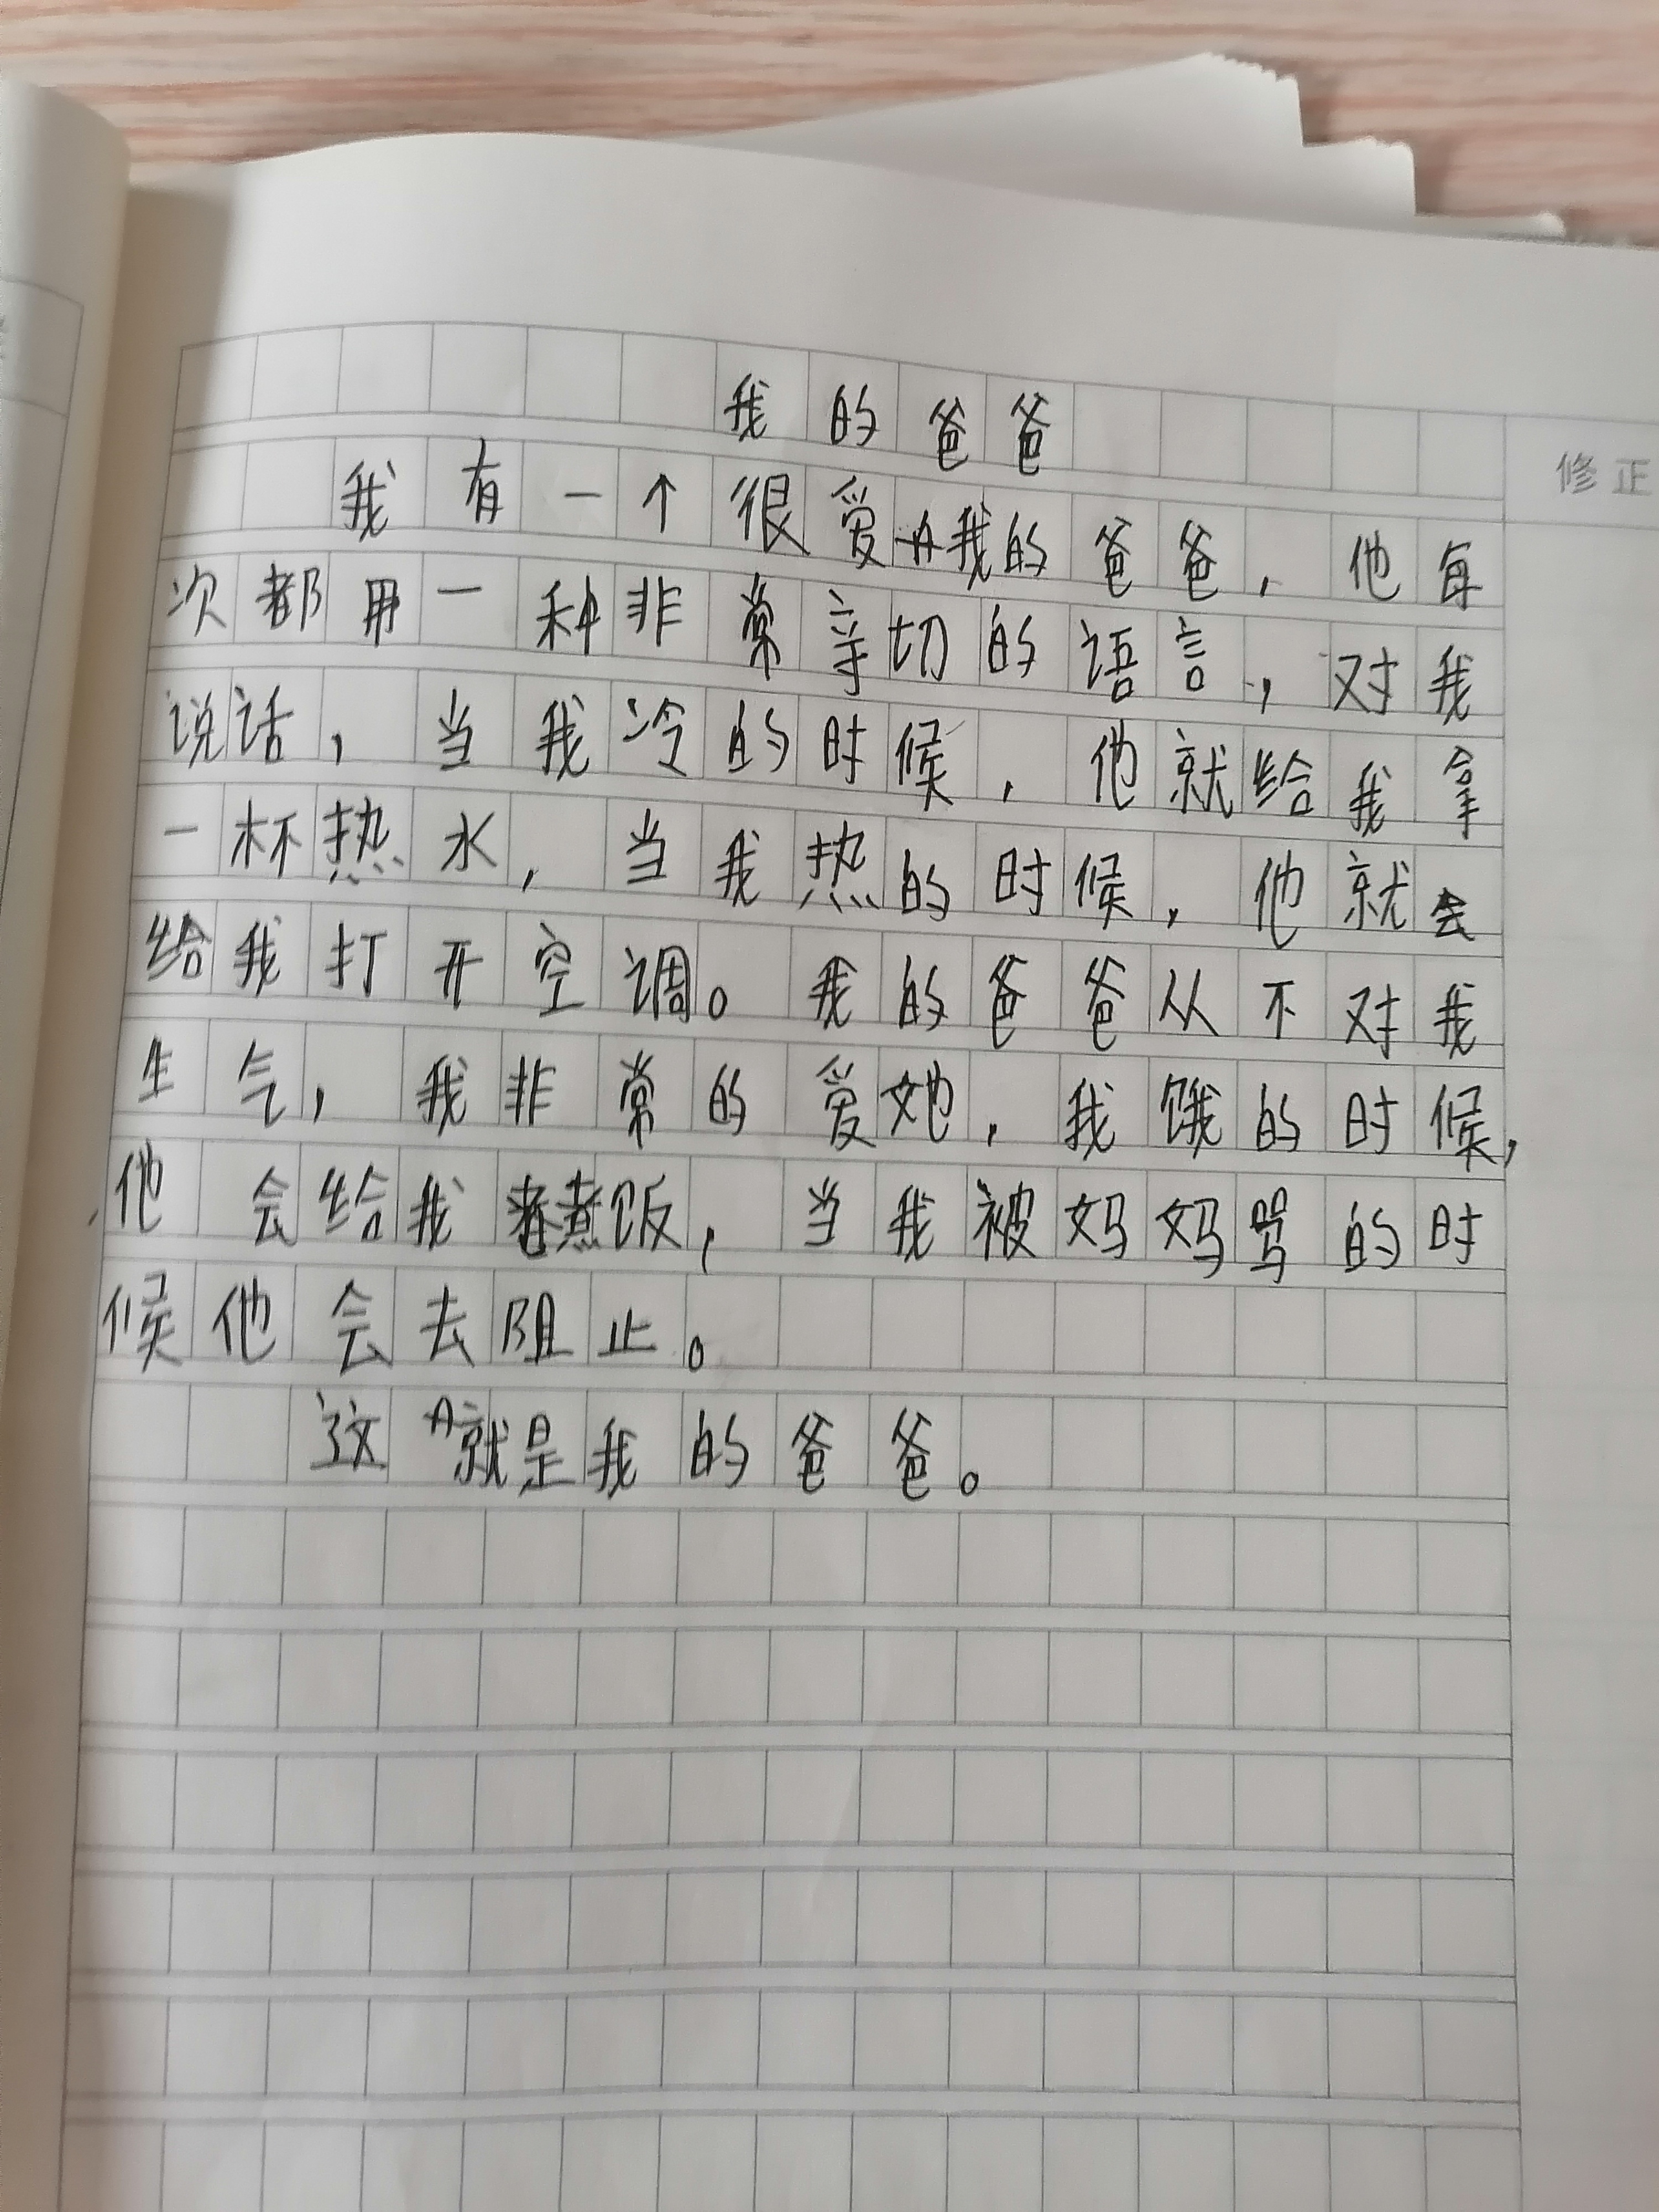 我的爸爸
修正
我有一个很爱我的爸爸，他每
次都用一种非常亲切的语言，对我
说话，当我冷的时候，他就给我拿
一杯热水，当我热的时候，他就会
给我打开空调。我的爸爸从不对我
生气，我非常的爱她，我饿的时候，
他会给我煮饭，当我被妈妈骂的时
候他会去阻止。
这就是我的爸爸。